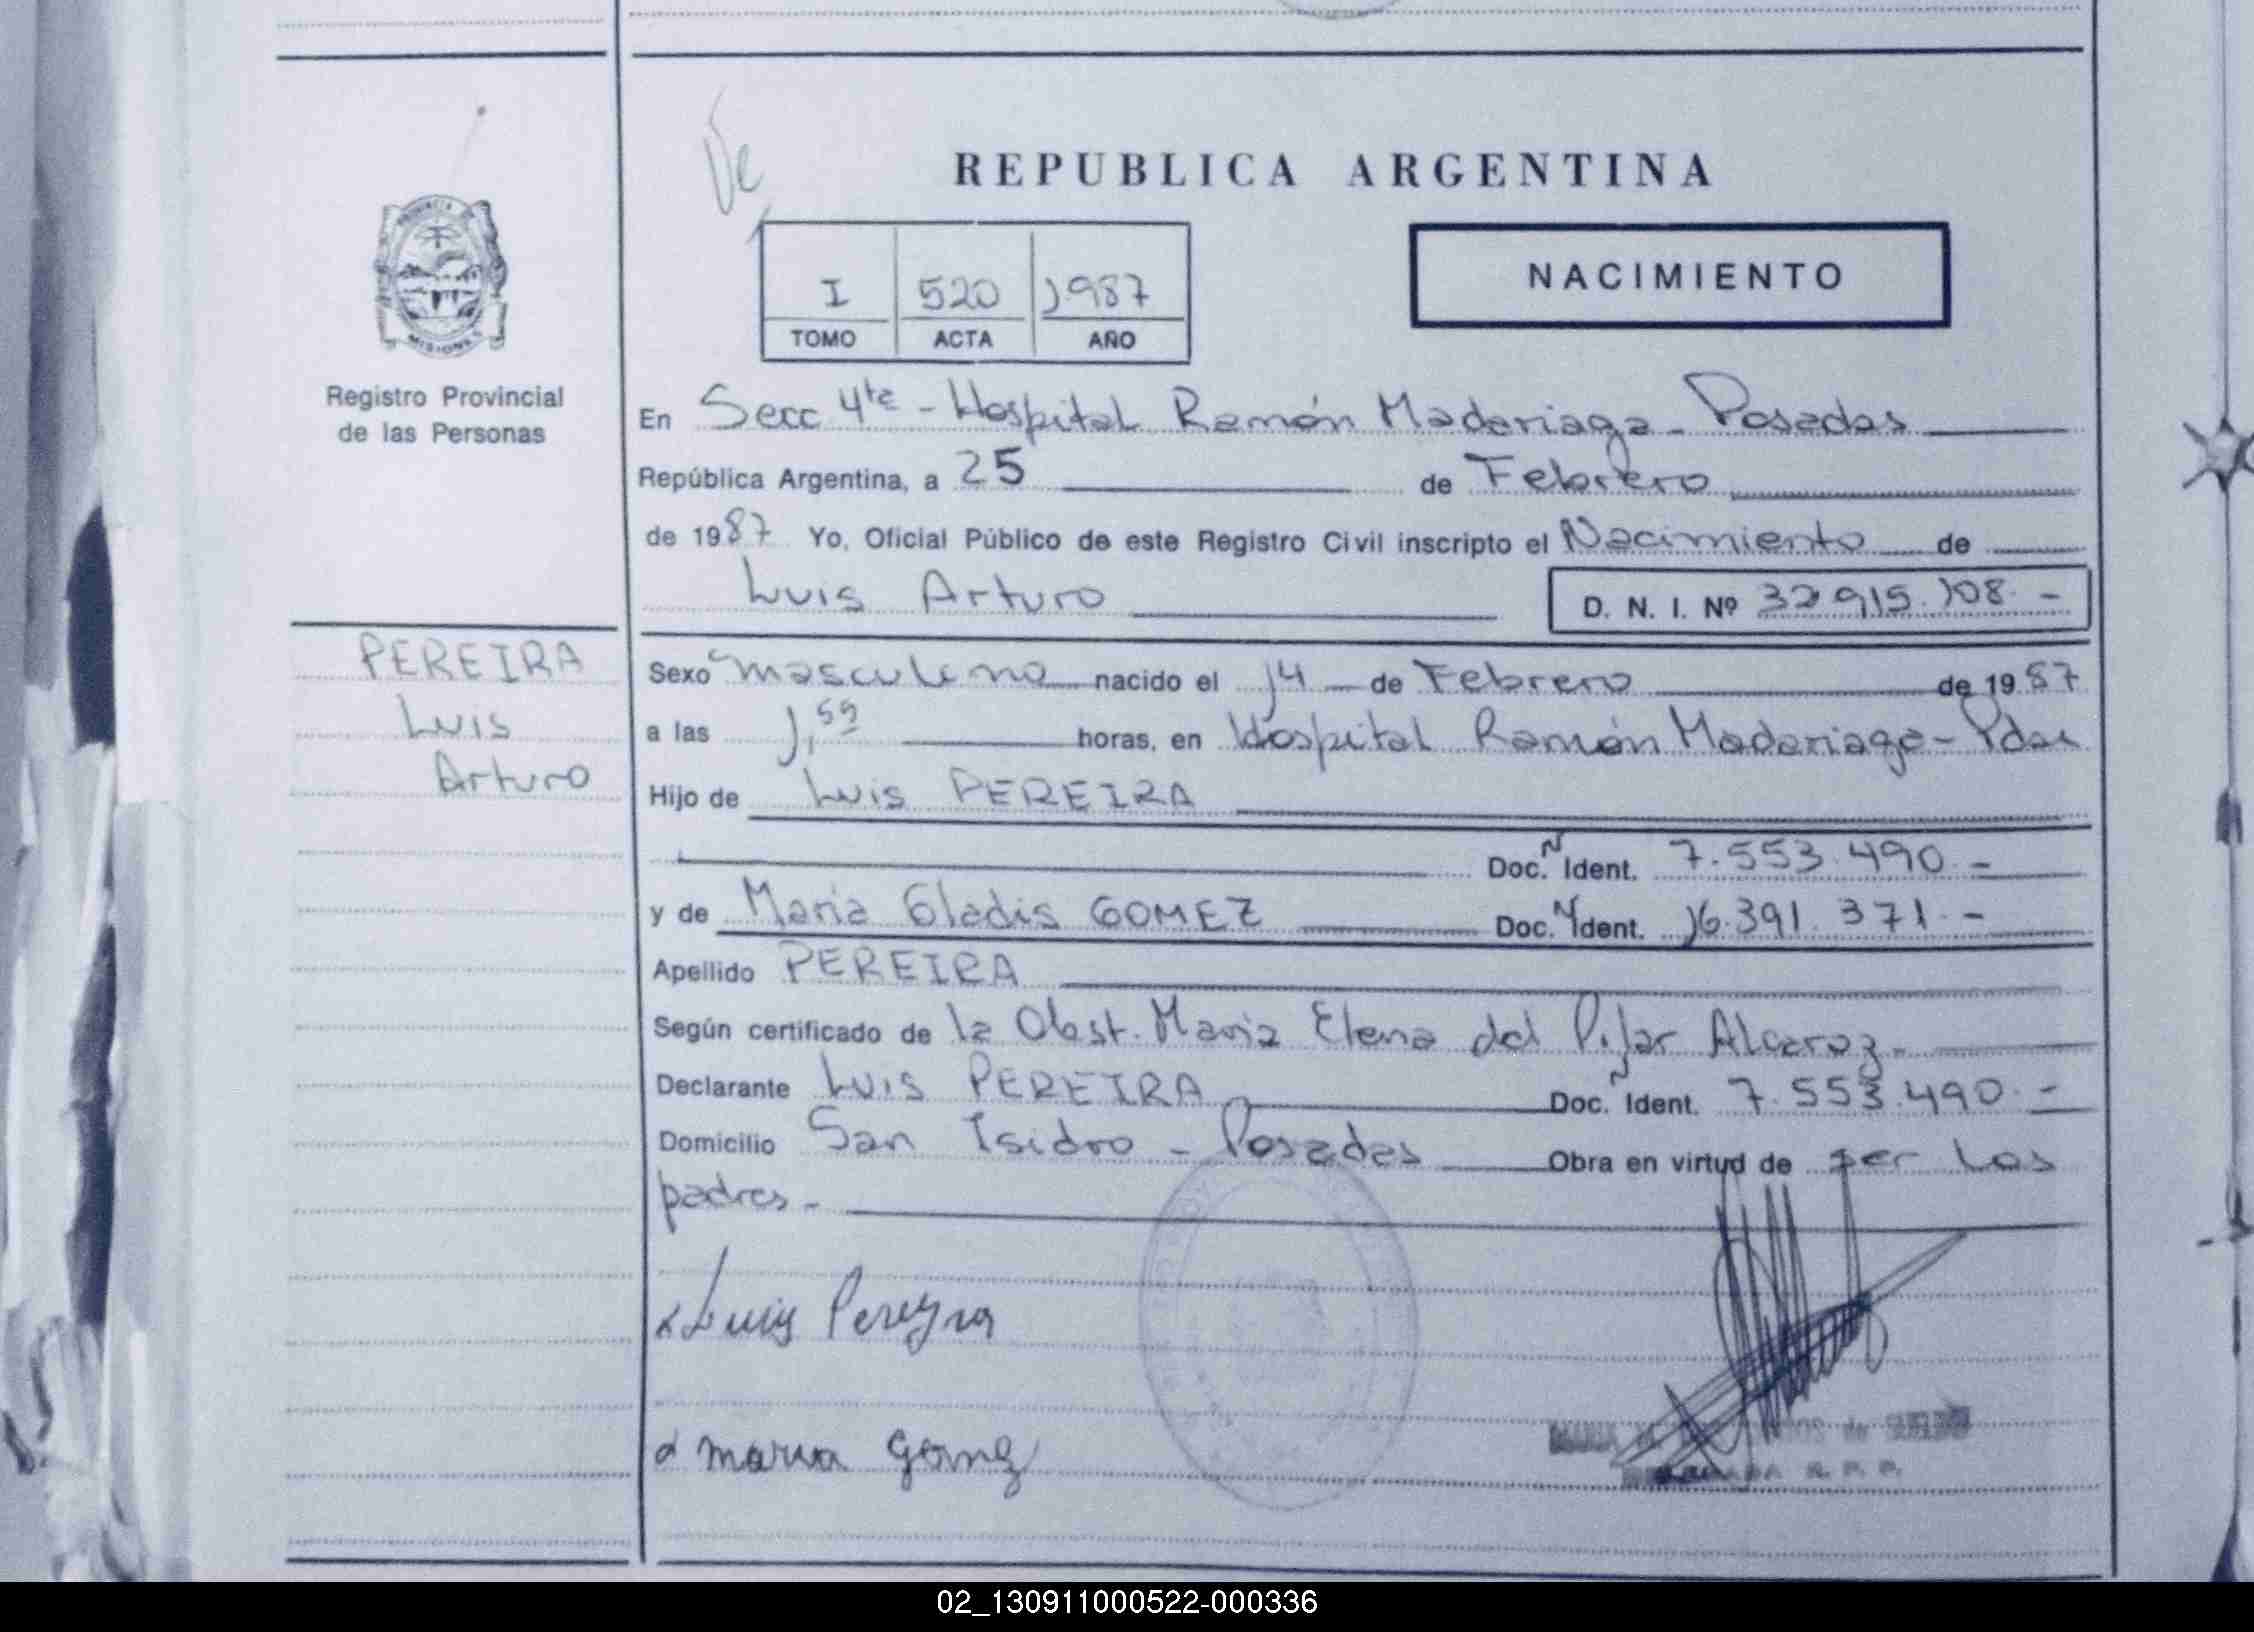 REPUBLICA ARGENTINA
NACIMIENTO
I 520 1987
TOMO ACTA AÑO
PROVINCIA DE
MISIONES
Registro Provincial
de las Personas
En Secc 4ta - Hospital Ramón Madariaga - Posadas
República Argentina, a 25 de Febrero
de 1987 Yo, Oficial Público de este Registro Civil inscripto el Nacimiento de
Luis Arturo D. N. I. Nº 32.915.108.-
PEREIRA
Luis
Arturo
Sexo masculino nacido el 14 de Febrero de 1987
a las 1,59 horas, en Hospital Ramón Madariaga - Pdas
Hijo de Luis PEREIRA
Doc. N Ident. 7.553.490.-
y de Maria Gladis GOMEZ Doc. N Ident. 16.391.371.-
Apellido PEREIRA
Según certificado de la Obst. Maria Elena del Pilar Alcaraz.-
Declarante Luis PEREIRA Doc. N Ident. 7.553.490.-
Domicilio San Isidro - Posadas Obra en virtud de ser los
padres.-
x Luis Pereyra
x maria Gomez
R. P. P.
02_130911000522-000336